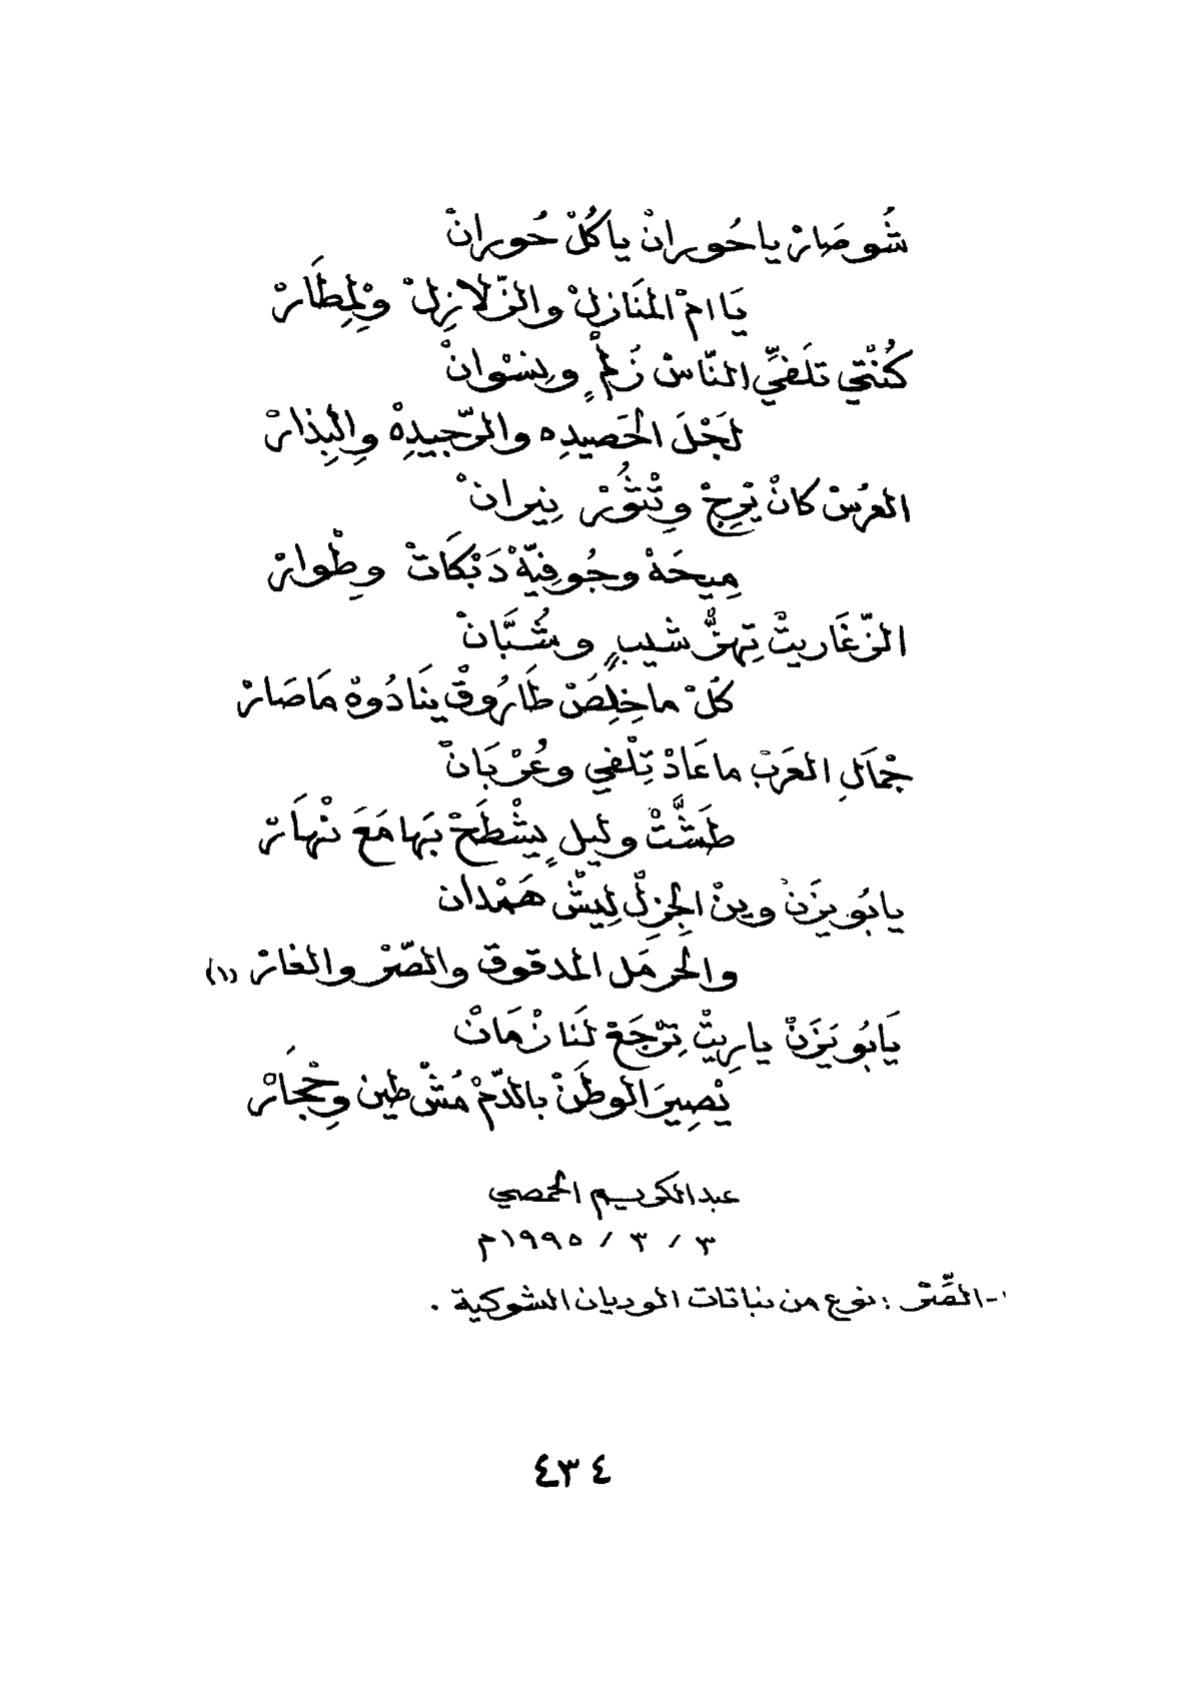 شُو صَارْ يا حُورانْ يا كُلْ حُورانْ
يَا امْ المنَازِلْ والزّلازِلْ وِلمِطَارْ
كُنْتي تلَفّي النّاسْ زُلمٍ ونِسْوانْ
لَجْلَ الحَصيدِه والرّجيدِهْ والبِذارْ
العرُسْ كانْ يْرِجْ وِتْثُورْ نِيرانْ
مِيحَهْ وجُوفِيّهْ دَبْكَاتْ وِطْوارْ
الزّغَاريتْ تِهزُّ شيبٍ وشُبَّانْ
كَلْ ما خِلِصْ طَارُوقْ ينَادُوهْ مَا صَارْ
جْمَالِ العرَبْ ما عَادْ تِلْفي وعُرْبَانْ
طَشَّتْ وليلٍ يِشْطَحْ بَها مَعَ نْهَارْ
يا بُو يزَنْ وينْ الجِزِلْ لِيشْ هَمْدان
والحرمَل المدقوق والصّرْ والغارْ (١)
يَا بُو يَزَنْ يا رِيتْ تِرْجَعْ لَنا زْمَانْ
يْصِيرَ الوطَنْ بالدّمْ مُشْ طين وِحْجَارْ
عبد الكريم الحمصي
٣ / ٣ / ١٩٩٥م
١- الصِّرْ : نوع من نباتات الوديان الشوكية .
٤٣٤